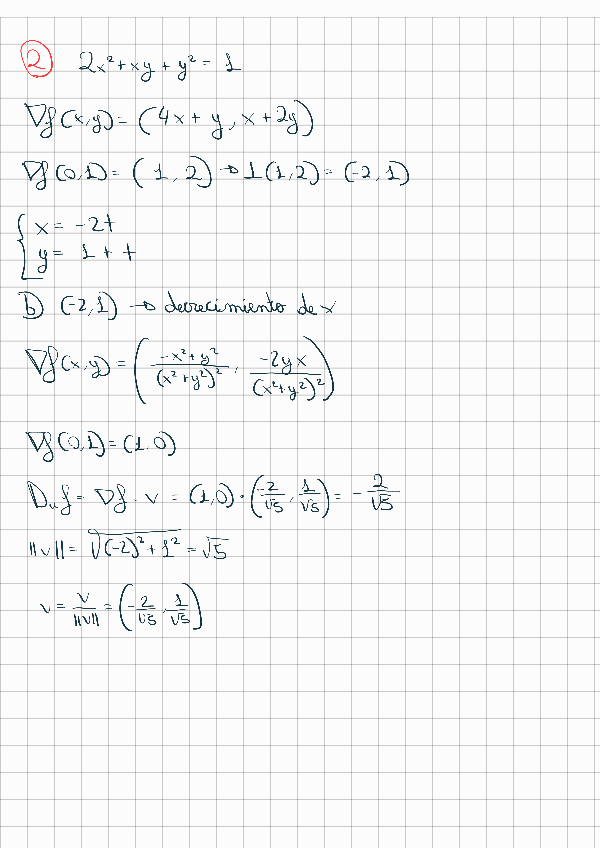 ② 2x² + xy + y² = 1
∇f(x,y) = (4x + y, x + 2y)
∇f(0,1) = (1, 2) → ⊥(1,2) = (-2, 1)
{ x = -2t
y = 1 + t
b) (-2,1) → decrecimiento de x
∇f(x,y) = ( (-x² + y²)/(x² + y²)², (-2yx)/(x² + y²)² )
∇f(0,1) = (1.0)
Dᵤf = ∇f · v = (1,0) · (-2/√5, 1/√5) = -2/√5
||v|| = √((-2)² + 1²) = √5
v = v/||v|| = (-2/√5, 1/√5)